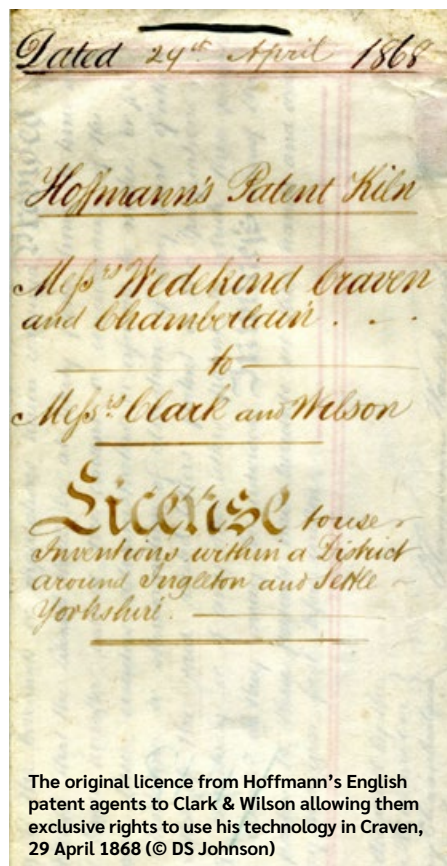 Dated 29th April 1868
Hoffmann's Patent Kiln
Messrs Wedekind Craven
and Chamberlain . . .
to
Messrs Clark and Wilson
License to use
Inventions within a District
around Ingleton and Settle
Yorkshire.
The original licence from Hoffmann's English
patent agents to Clark & Wilson allowing them
exclusive rights to use his technology in Craven,
29 April 1868 (© DS Johnson)